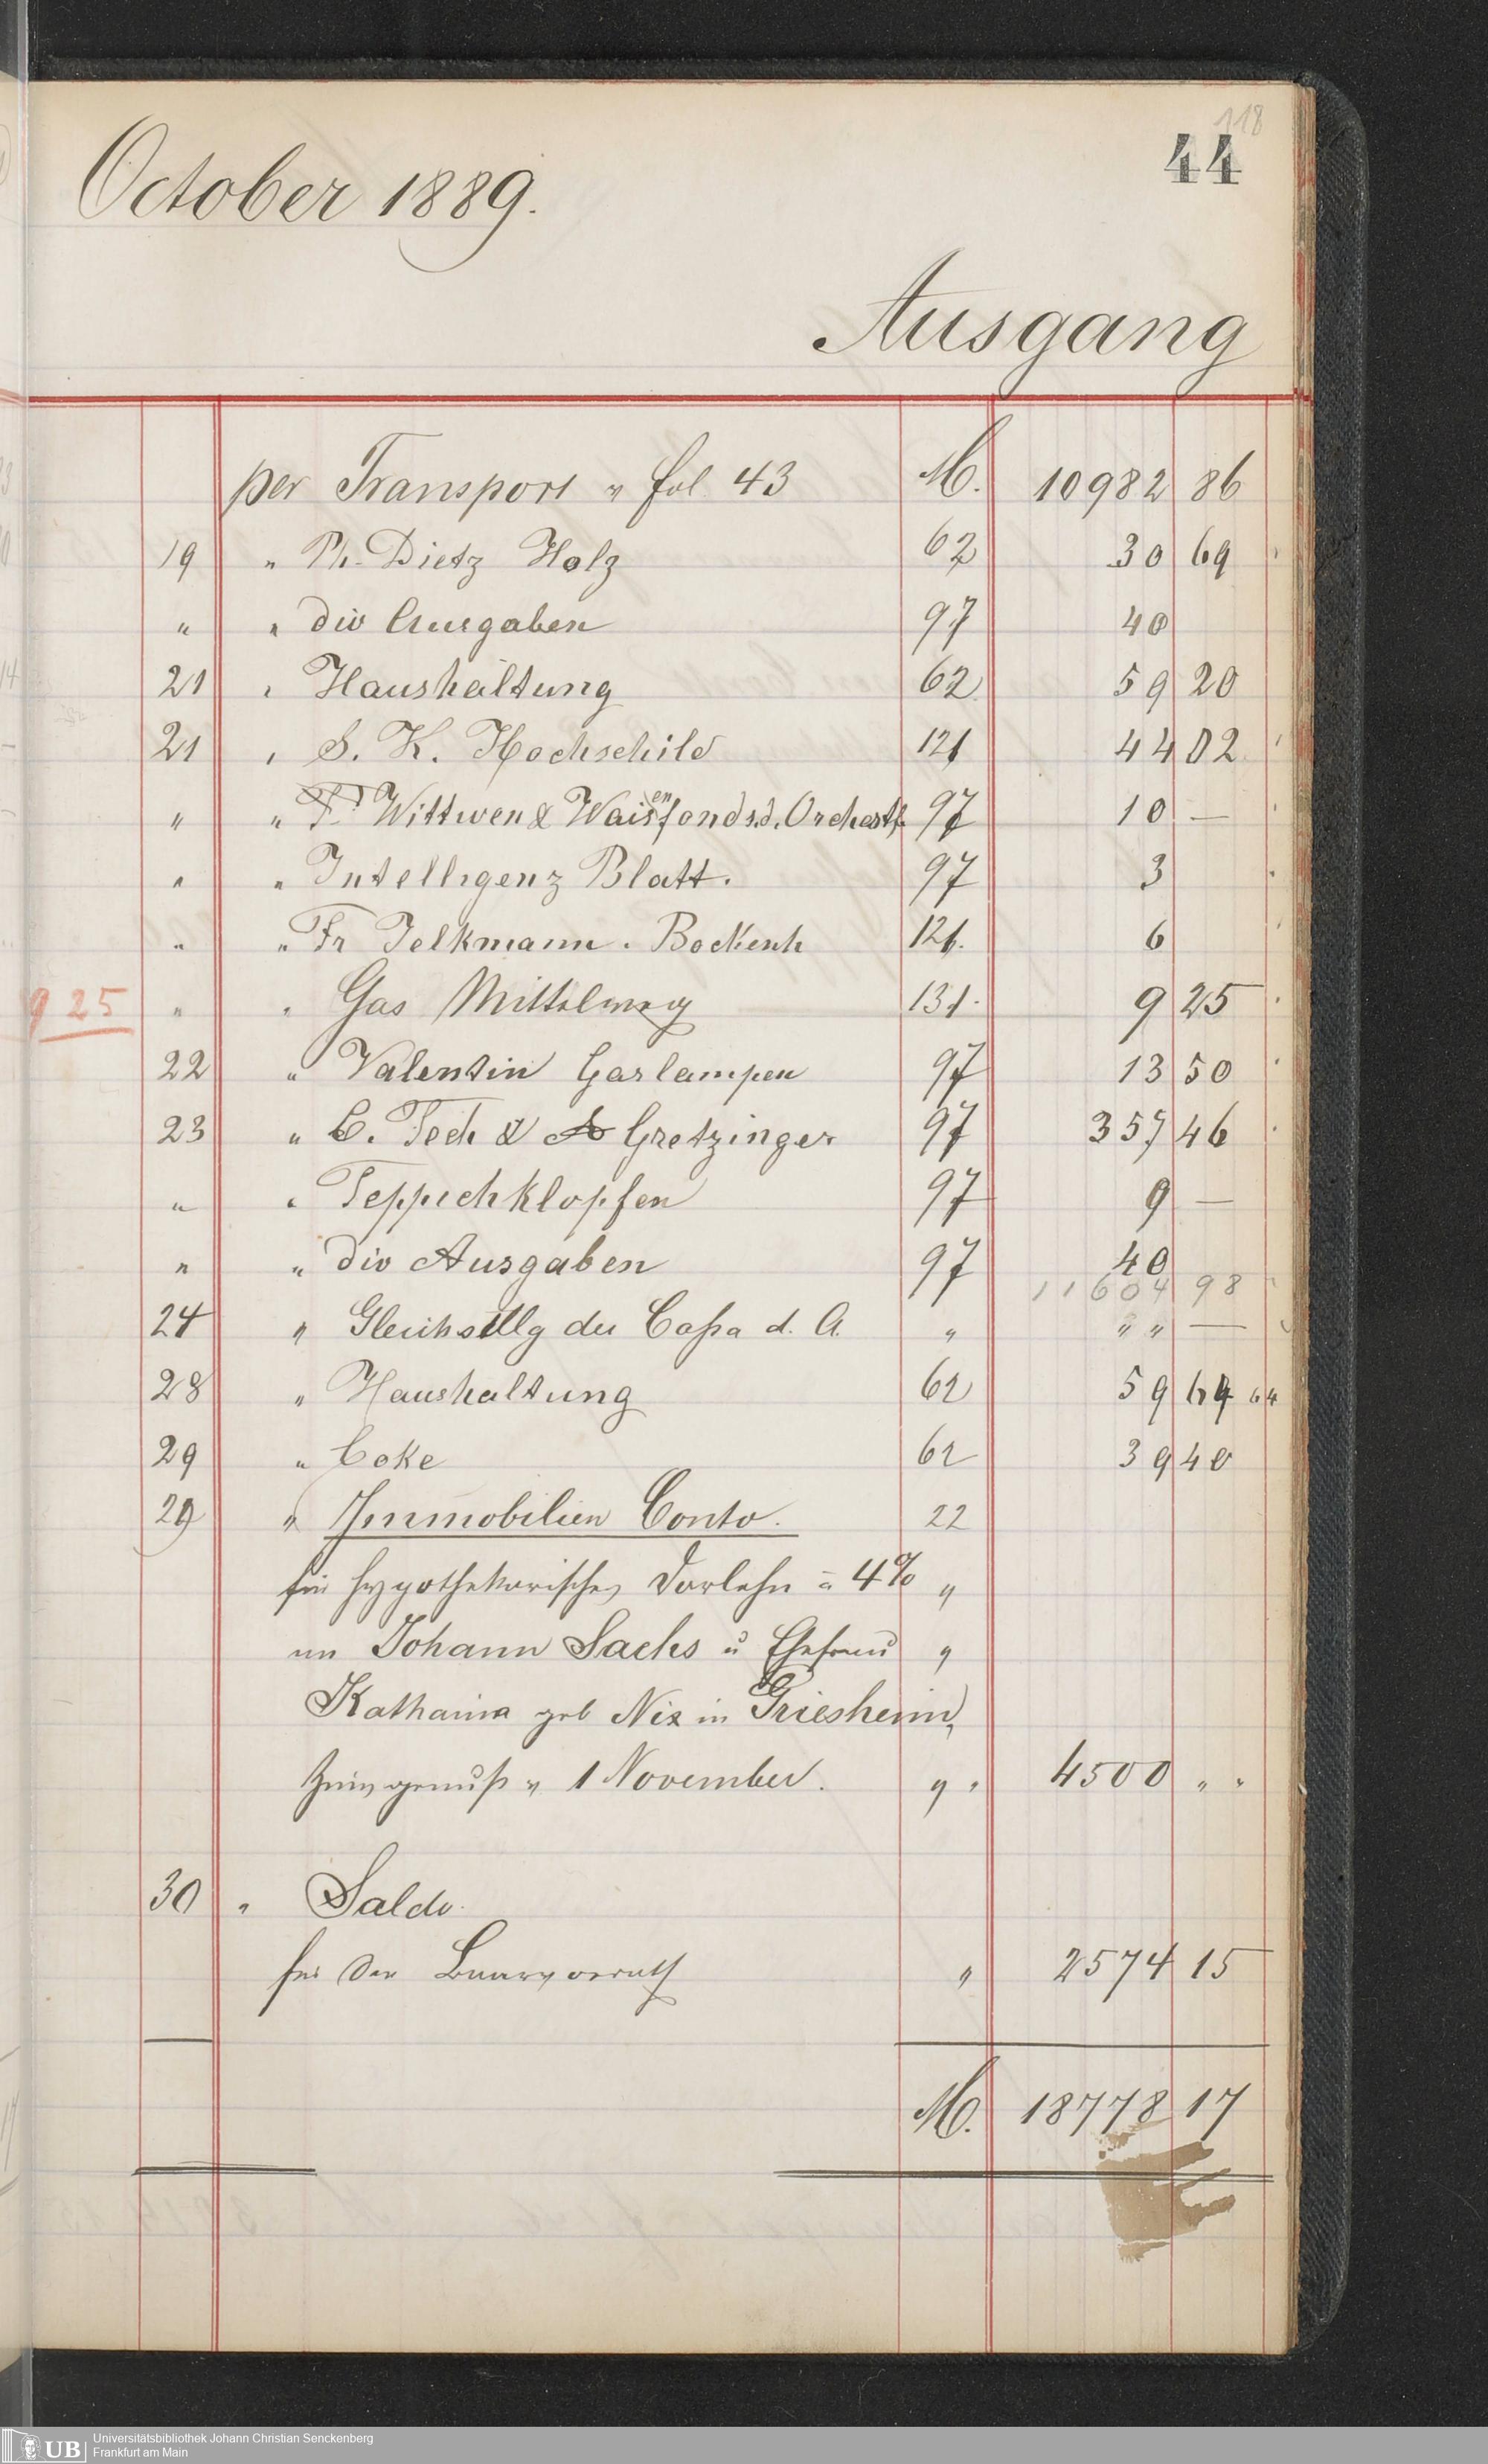 118
44
October 1889.
Ausgang
per Transport v fol. 43 M. 10982 86
19 " Ph. Dietz Holz 62 30 69
" " div Ausgaben 97 40
21 " Haushaltung 62 59 20
21 " S. K. Hochschild 121 44 02
" " Wittwen & Waisenfonds d. Orchest. 97 10 —
" " Intelligenz Blatt. 97 3
" " Fr Jelkmann. Bockenh 121. 6
9 25 " " Gas Mittelweg 131. 9 25
22 " Valentin Gaslampen 97 13 50
23 " C. Tech & Gretzinger 97 357 46
" " Teppichklopfen 97 9 —
" " div Ausgaben 97 40
11604 98
24 " Gleichstllg der Cassa d. A. " " " —
28 " Haushaltung 62 59 64 64
29 " Coke 62 39 40
29 " Immobilien Conto. 22
für hypothekarisches Darlehn à 4% "
an Johann Sachs u Ehefrau "
Katharina geb Nix in Griesheim,
Zinsgenuß v 1 November. " " 4500 " "
30 " Saldo.
für den Baarvorrath " 2574 15
M. 18778 17
UB
Universitätsbibliothek Johann Christian Senckenberg
Frankfurt am Main